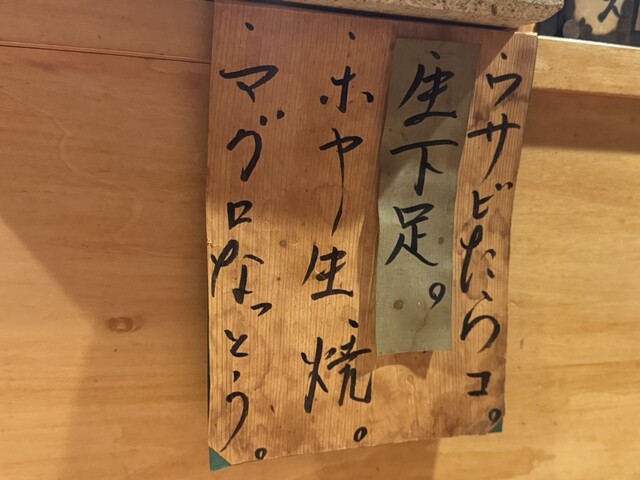 ・ワサビたらコ。
生下足。
・ホヤ生焼。
・マグロなっとう。